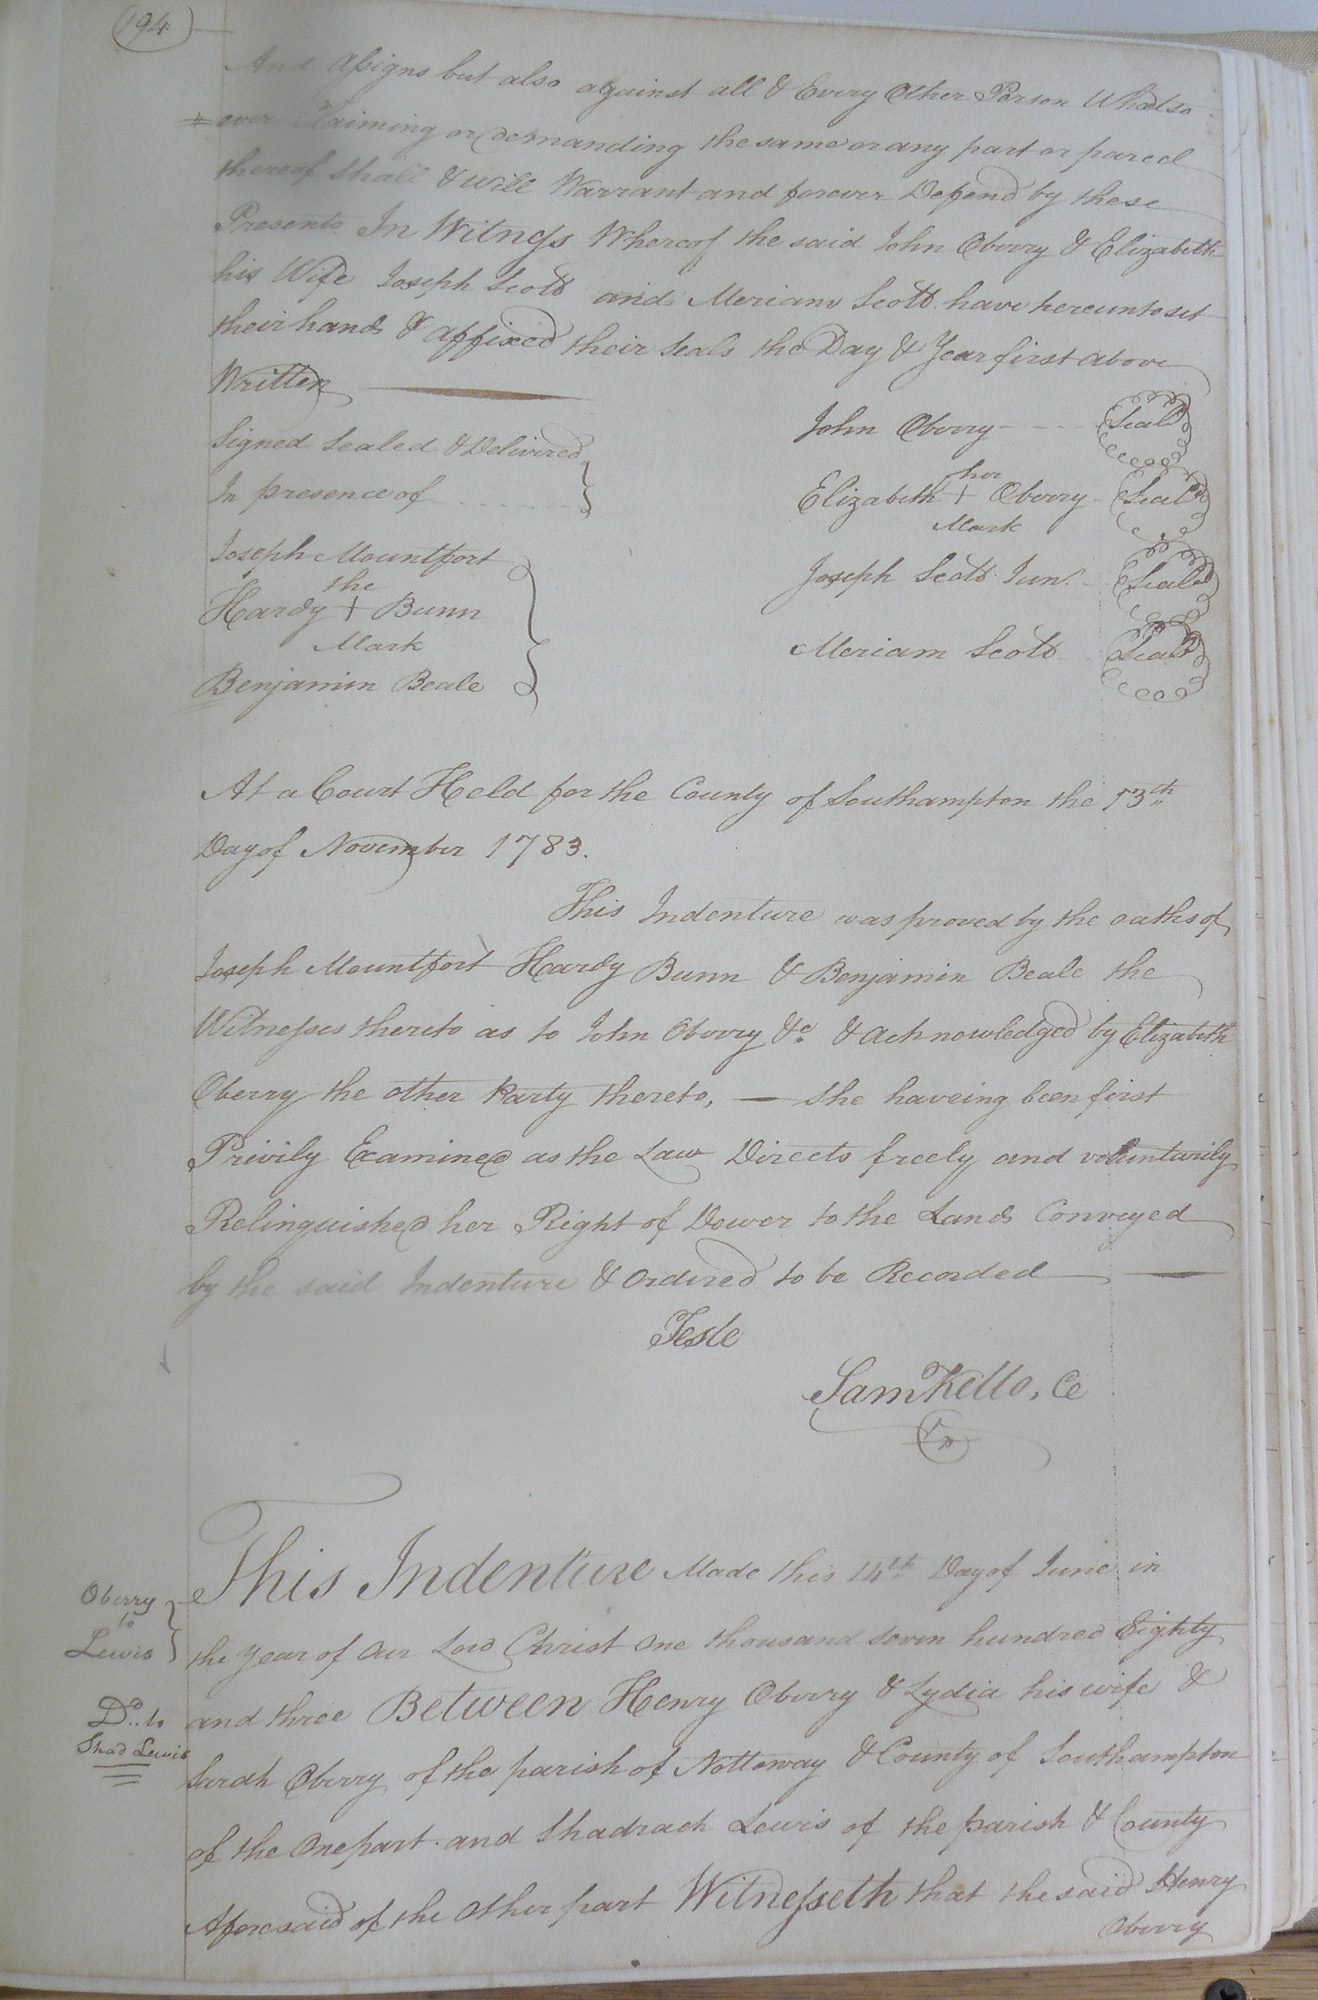 194
And assigns but also against all & Every Other Person Whatso
ever Claiming or demanding the same or any part or parcel
thereof shall & will Warrant and forever Defend by these
Presents In Witness Whereof the said John Oberry & Elizabeth
his Wife Joseph Scott and Meriam Scott have hereunto set
their hands & affixed their Seals the Day & Year first above
Written
Signed Sealed & Delivired
In presence of
John Oberry Seal
her
Elizabeth + Oberry Seal
Mark
Joseph Mountfort
the
Hardy + Bunn
Mark
Benjamin Beale
Joseph Scott Junr. Seal
Meriam Scott Seal
At a Court Held for the County of Southampton the 13th
Day of November 1783.
This Indenture was proved by the oaths of
Joseph Mountfort Hardy Bunn & Benjamin Beale the
Witnesses thereto as to John Oberry &c. & Acknowledged by Elizabeth
Oberry the other Party thereto, — She haveing been first
Privily Examined as the Law Directs freely and voluntarily
Relinguished her Right of Dower to the Lands Conveyed
by the said Indenture & Ordired to be Recorded
Teste
Sam Kello, Ce
Oberry
to
Lewis
Do. to
Shad Lewis
This Indenture Made this 14th Day of June in
the Year of Our Lord Christ One thousand seven hundred Eighty
and three Between Henry Oberry & Lydia his wife &
Sarah Oberry of the parish of Nottoway & County of Southampton
of the One part and Shadrach Lewis of the parish & County
Aforesaid of the Other part Witnesseth that the said Henry
Oberry